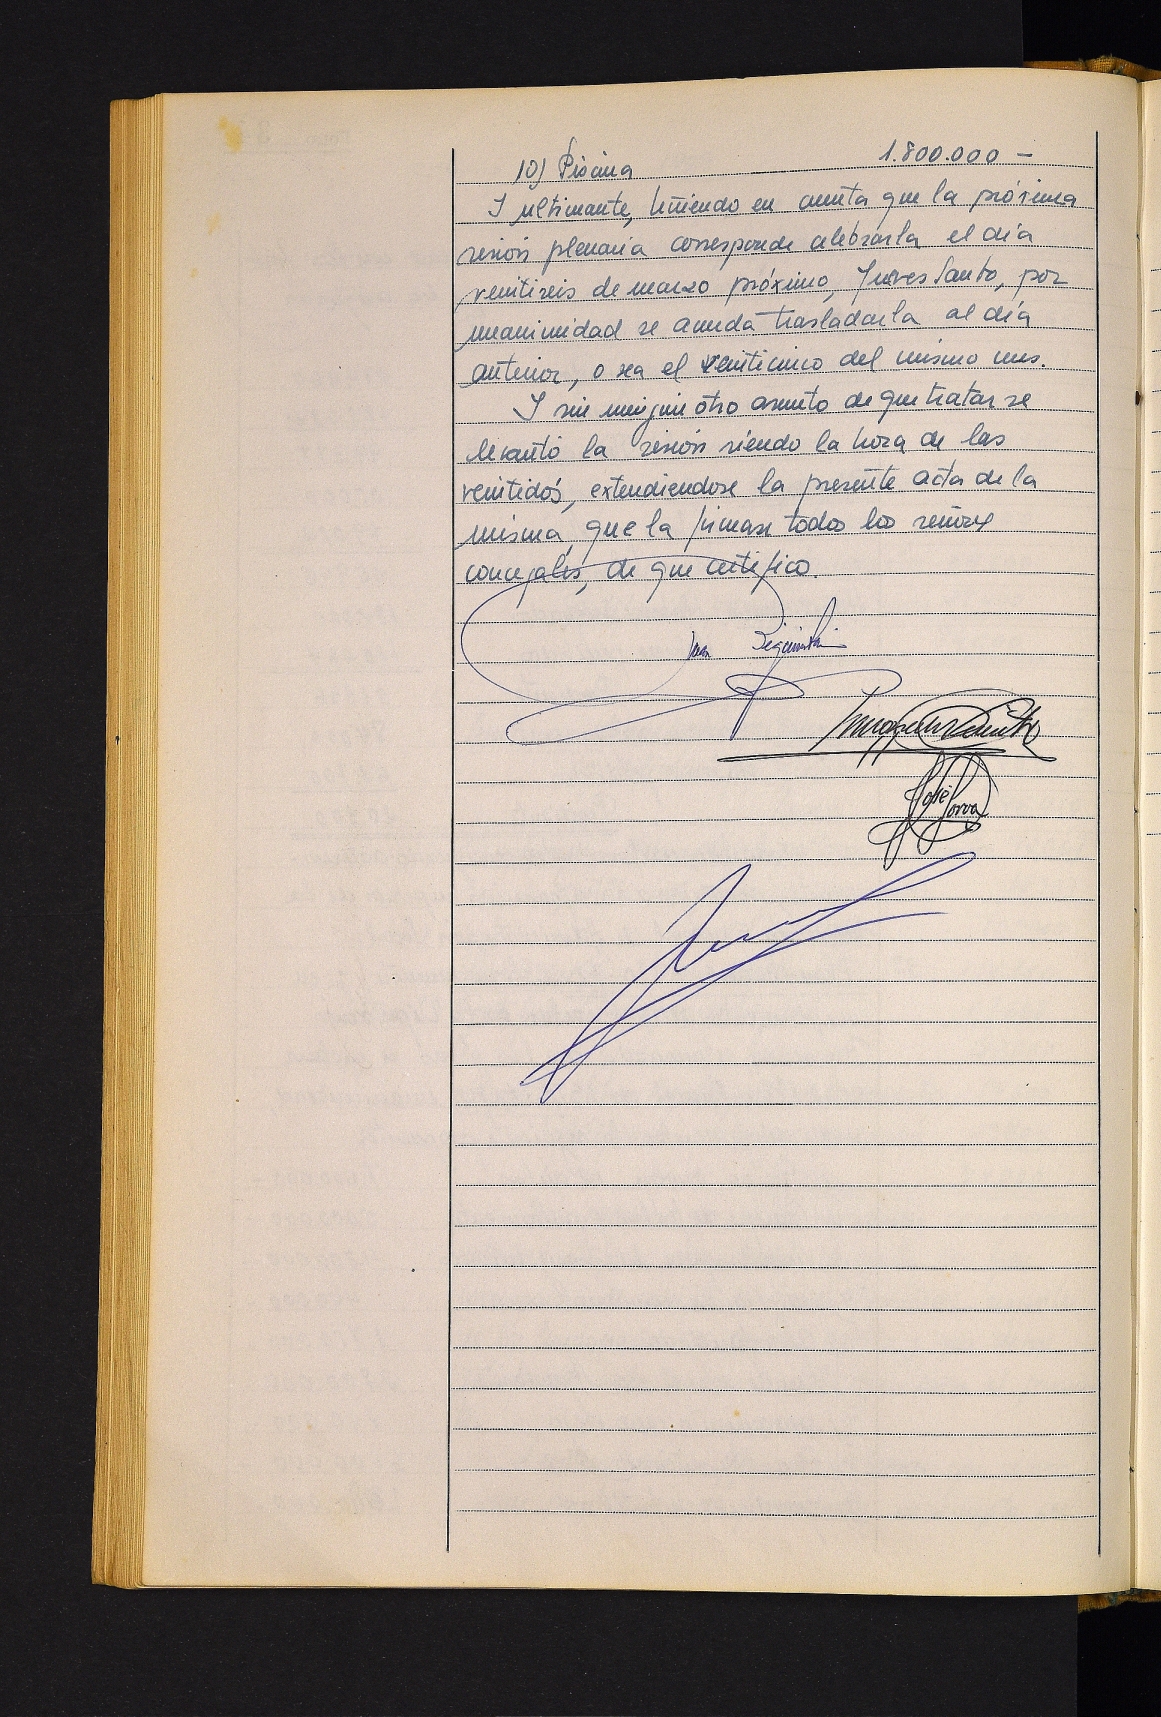 10) Piscina 1.800.000 —
I ultimante, tiniendo en cuenta que la próxima
sesión plenaria corresponde celebrarla el día
ventiseis de marzo próximo, Jueves Santo, por
unanimidad se acuerda trasladarla al día
anterior, o sea el venticinco del mismo mes.
I sin ningún otro asunto de que tratar se
levantó la sesión siendo la hora de las
ventidós, extendiendose la presente acta de la
misma, que la firman todos los señores
concejales, de que certifico.
Juan
José